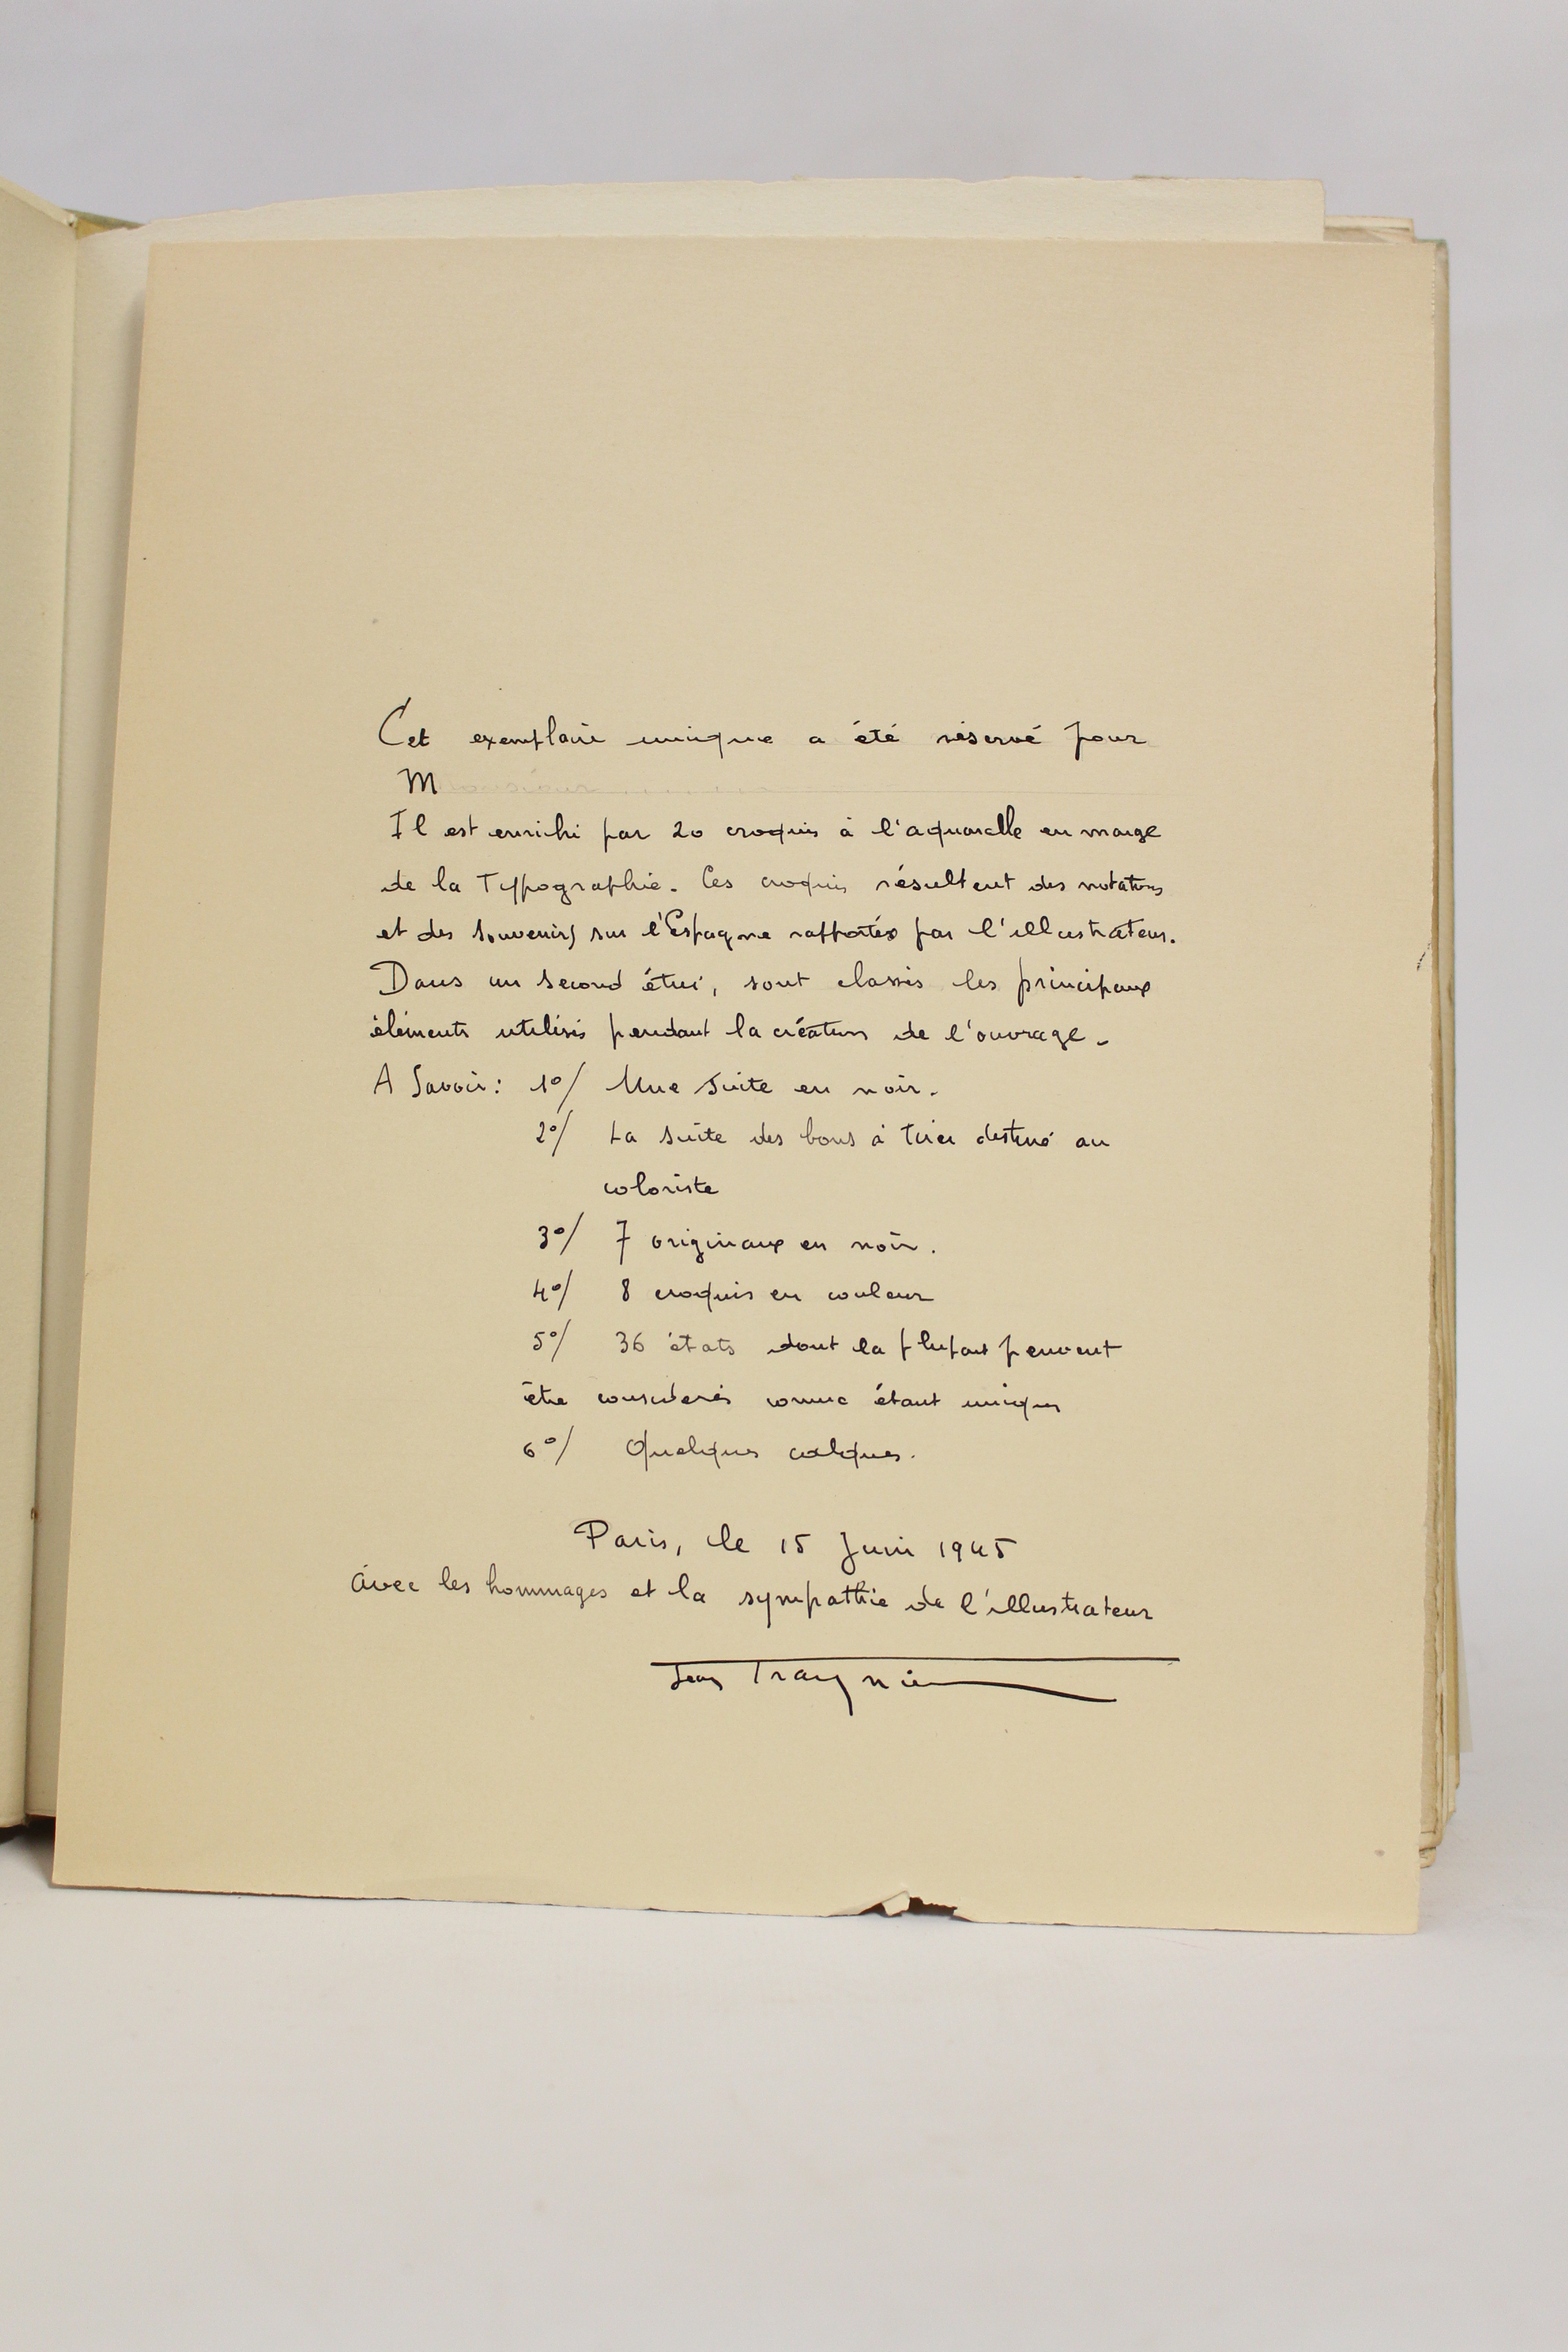 Cet exemplaire unique a été réservé pour
M
Il est enrichi par 20 croquis à l'aquarelle en marge
de la Typographie. Ces croquis résultent des notations
et des souvenirs sur l'Espagne rapportés par l'illustrateur.
Dans un second étui, sont classés les principaux
éléments utilisés pendant la création de l'ouvrage.
A Savoir : 1°/ Une suite en noir.
2°/ La suite des bons à tirer destiné au
coloriste
3°/ 7 originaux en noir.
4°/ 8 croquis en couleur
5°/ 36 états dont la plupart peuvent
être considérés comme étant uniques
6°/ Quelques calques.
Paris, le 15 Juin 1945
Avec les hommages et la sympathie de l'illustrateur
Jean Traynier